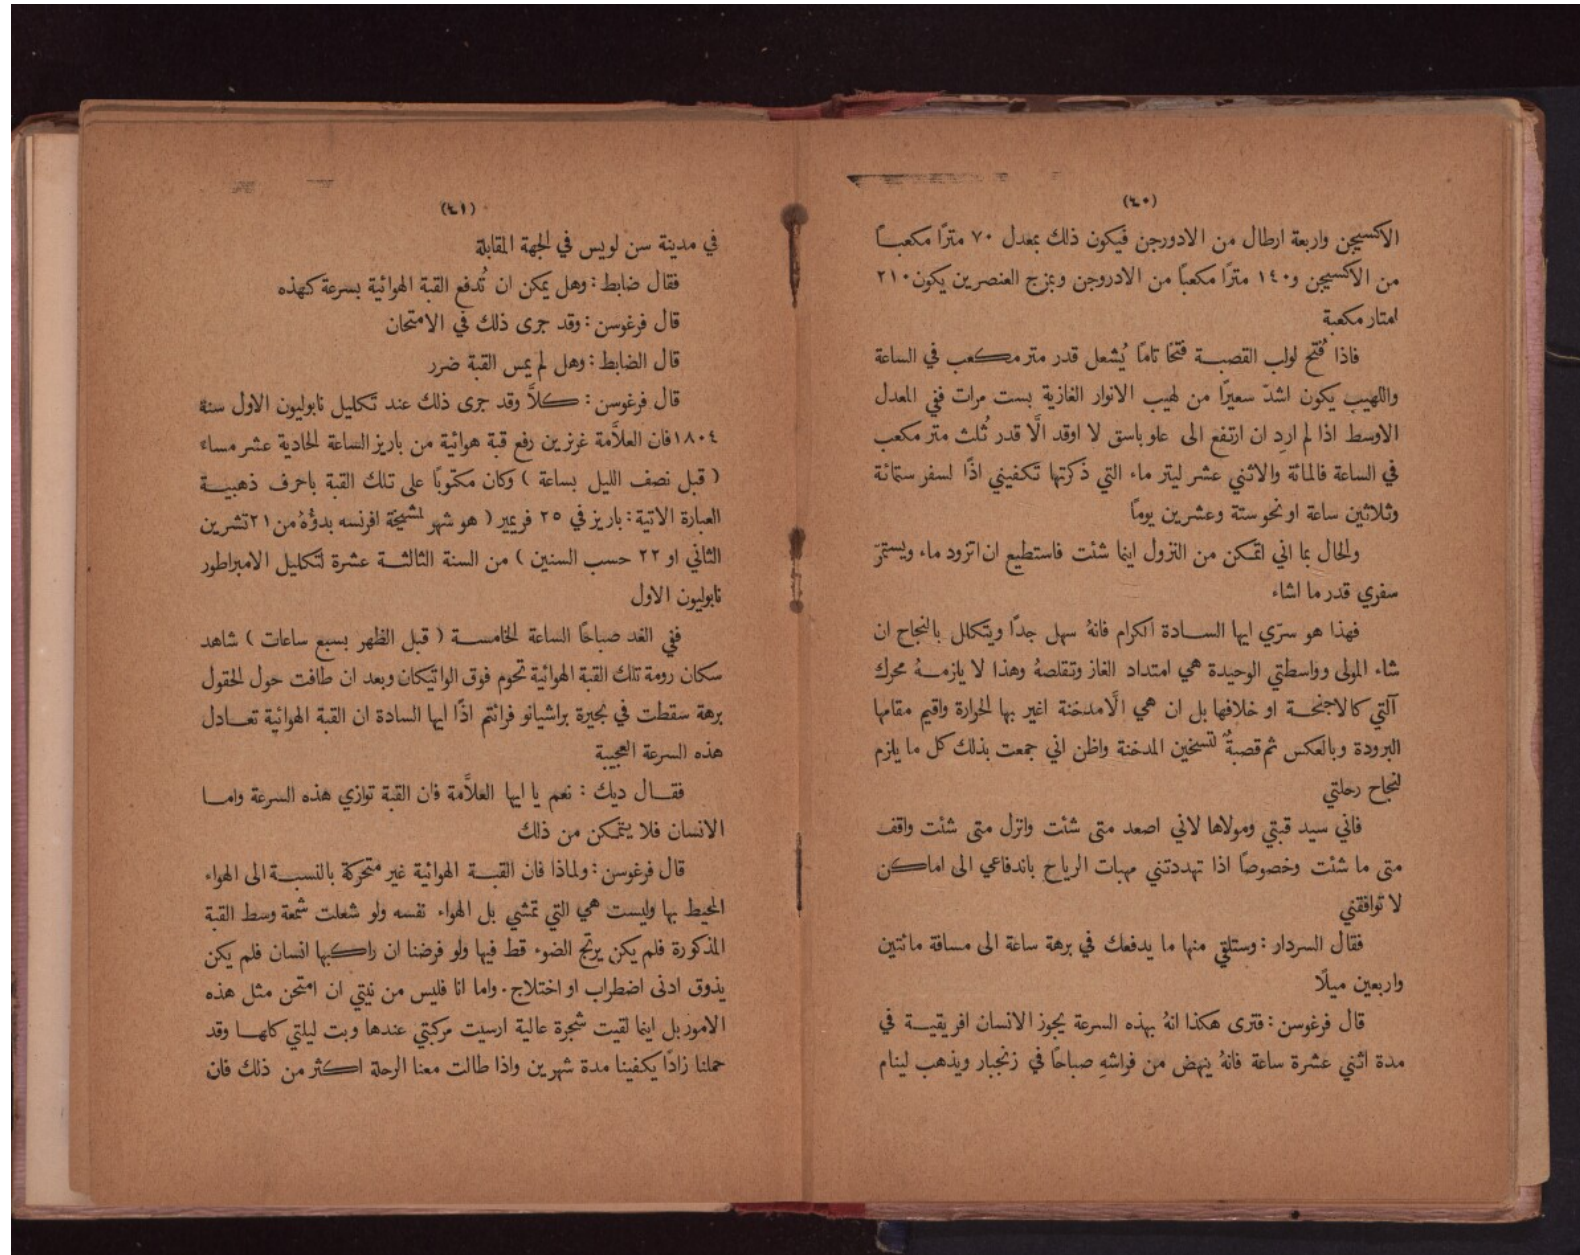 (٤٠)
الاكسيجن واربعة ارطال من الادورجن فيكون ذلك بمعدل ٧٠ مترًا مكعبـاً
من الاكسيجن و١٤٠ مترًا مكعبًا من الادروجن وبمزج العنصرين يكون ٢١٠
امتار مكعبة
فاذا فُتح لولب القصبـة فتحًا تامًا يُشعل قدر متر مكعب في الساعة
واللهيب يكون اشدّ سعيرًا من لهيب الانوار الغازية بست مرات ففي المعدل
الاوسط اذا لم ارِد ان ارتفع الى علو باسق لا اوقد الَّا قدر ثُلث متر مكعب
في الساعة فالمائة والاثني عشر ليتر ماء التي ذكرتها تكفيني اذًا لسفر ستمائة
وثلاثين ساعة او نحو ستة وعشرين يومًا
والحال بما اني اتمكن من النزول اينما شئت فاستطيع ان اتزود ماء ويستمرّ
سفري قدر ما اشاء
فهذا هو سرّي ايها السادة الكرام فانهُ سهل جدًا ويتكلل بالنجاح ان
شاء المولى وواسطتي الوحيدة هي امتداد الغاز وتقلصهُ وهذا لا يلزمـهُ محرك
آلتي كالاجنحـة او خلافها بل ان هي الَّا مدخنة اغير بها الحرارة واقيم مقامها
البرودة وبالعكس ثم قصبةٌ لتسخين المدخنة واظن اني جمعت بذلك كل ما يلزم
لنجاح رحلتي
فاني سيد قبتي ومولاها لاني اصعد متى شئت وانزل متى شئت واقف
متى ما شئت وخصوصًا اذا تهددتني مهبات الرياح باندفاعي الى اماكن
لا توافقني
فقال السردار : وستلقي منها ما يدفعك في برهة ساعة الى مسافة مائتين
واربعين ميلًا
قال فرغوسن : فترى هكذا انهُ بهذه السرعة يجوز الانسان افريقيـة في
مدة اثني عشرة ساعة فانهُ ينهض من فراشهِ صباحًا في زنجبار ويذهب لينام
(٤١)
في مدينة سن لويس في الجهة المقابلة
فقال ضابط : وهل يمكن ان تُدفع القبة الهوائية بسرعة كهذه
قال فرغوسن : وقد جرى ذلك في الامتحان
قال الضابط : وهل لم يمس القبة ضرر
قال فرغوسن : كلاَّ وقد جرى ذلك عند تكليل نابوليون الاول سنة
١٨٠٤ فان العلاَّمة غرنرين رفع قبة هوائية من باريز الساعة الحادية عشر مساء
( قبل نصف الليل بساعة ) وكان مكتوبًا على تلك القبة باحرف ذهبيـة
العبارة الاتية : باريز في ٢٥ فريمير ( هو شهر لمشيخة افرنسه بدؤُهُ من ٢١ تشرين
الثاني او ٢٢ حسب السنين ) من السنة الثالثـة عشرة لتكليل الامبراطور
نابوليون الاول
ففي الغد صباحًا الساعة الخامسـة ( قبل الظهر بسبع ساعات ) شاهد
سكان رومة تلك القبة الهوائية تحوم فوق الواتيكان وبعد ان طافت حول الحقول
برهة سقطت في بحيرة براشيانو فرائتم اذًا ايها السادة ان القبة الهوائية تعـادل
هذه السرعة العجيبة
فقـال ديك : نعم يا ايها العلاَّمة فان القبة توازي هذه السرعة وامـا
الانسان فلا يتمكن من ذلك
قال فرغوسن : ولماذا فان القبـة الهوائية غير متحركة بالنسبـة الى الهواء
المحيط بها وليست هي التي تمشي بل الهواء نفسه ولو شعلت شمعة وسط القبة
المذكورة فلم يكن يرتج الضوء قط فيها ولو فرضنا ان راكبها انسان فلم يكن
يذوق ادنى اضطراب او اختلاج . واما انا فليس من نيتي ان امتحن مثل هذه
الامور بل اينما لقيت شجرة عالية ارسيت مركبتي عندها وبت ليلتي كلهـا وقد
حملنا زادًا يكفينا مدة شهرين واذا طالت معنا الرحلة اكثر من ذلك فان